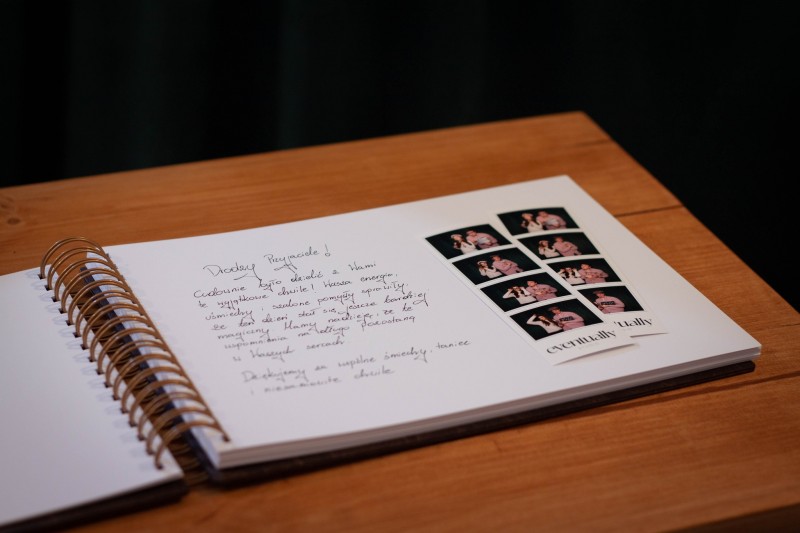 Drodzy Przyjaciele!
Cudownie było dzielić z Wami
te wyjątkowe chwile! Wasza energia,
uśmiechy i szalone pomysły sprawiły,
że ten dzień stał się jeszcze bardziej
magiczny. Mamy nadzieję, że te
wspomnienia na długo pozostaną
w Waszych sercach
Dziękujemy za wspólne śmiechy, taniec
i niesamowite chwile
eventually
tually